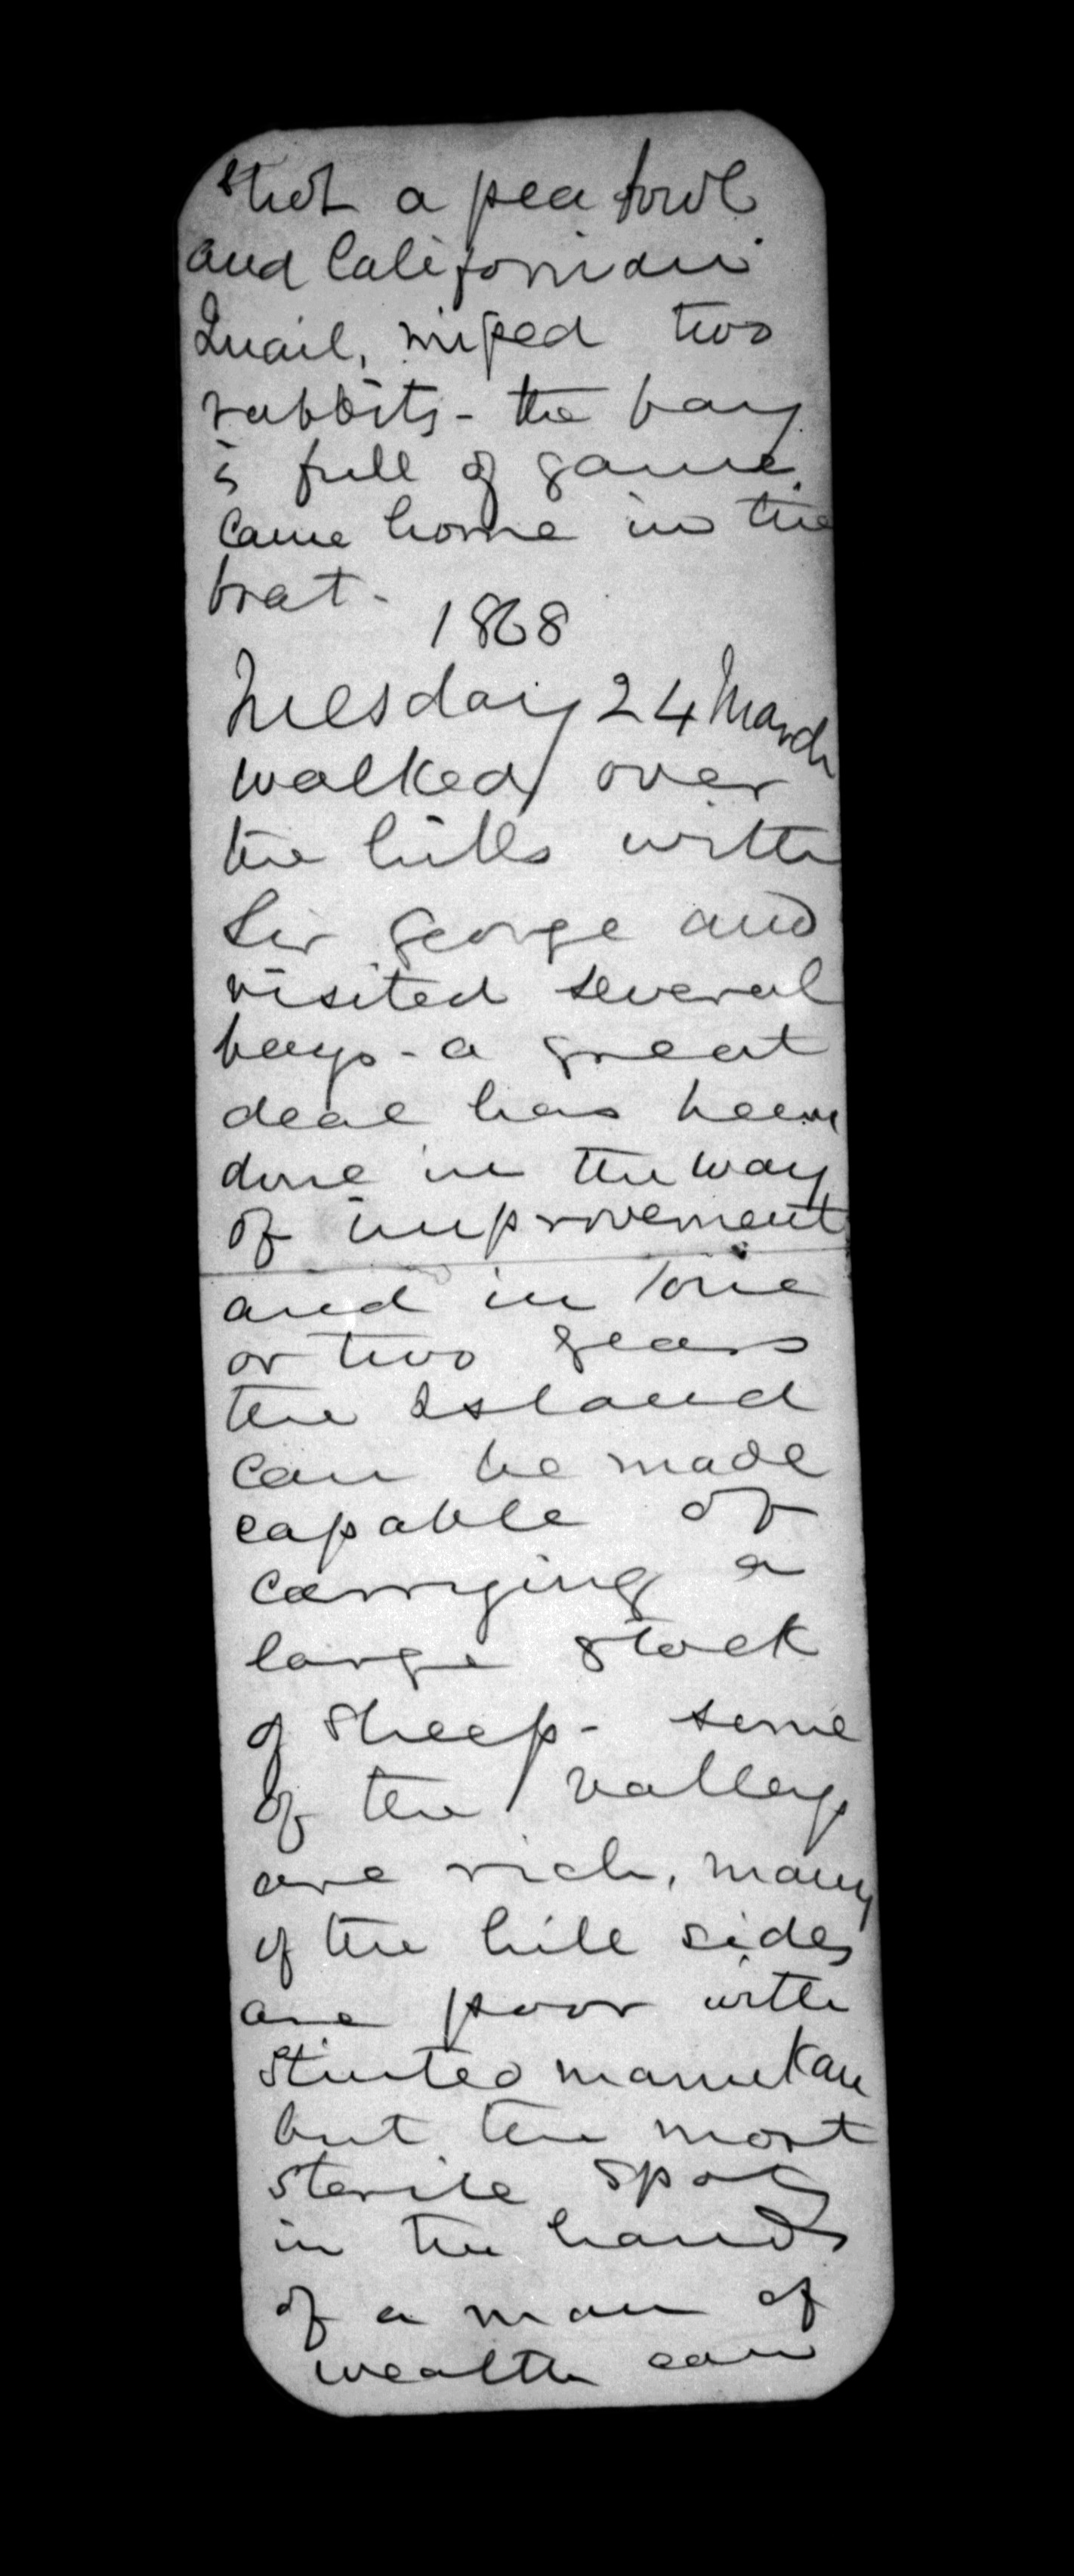 Shot a pea fowl
and Californian
Quail, miped two
rabbits - the bay
is full of game.
Came home in the
boat -
1868
Tuesday 24 March
walked over
the hills with
Sir George and
visited several
bays - a great
deal has been
done in the way
of improvement
and in one
or two years
the Island
can be made
capable of
carrying a
large stock
of sheep - some
of the valleys
are rich, many
of the hill sides
are poor with
stunted manukau
but the most
sterile spots
in the hands
of a man of
wealth can